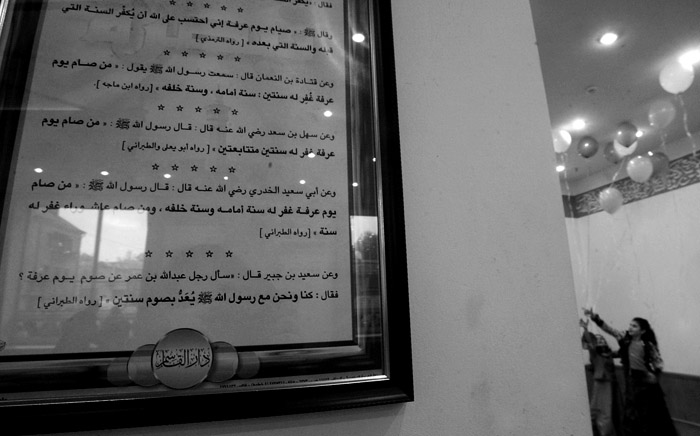 فقال :
☆ ☆ ☆ ☆ ☆
وقال ﷺ : « صيام يوم عرفة إني احتسب على الله أن يُكفّر السنة التي
قبله والسنة التي بعده » [ رواه الترمذي ]
☆ ☆ ☆ ☆ ☆
وعن قتادة بن النعمان قال : سمعت رسول الله ﷺ يقول : « من صام يوم
عرفة غُفر له سنتين : سنة أمامه ، وسنة خلفه » [رواه ابن ماجه].
☆ ☆ ☆ ☆ ☆
وعن سهل بن سعد رضي الله عنه قال : قال رسول الله ﷺ : « من صام يوم
عرفة غفر له سنتين متتابعتين » [رواه أبو يعلى والطبراني]
☆ ☆ ☆ ☆ ☆
وعن أبي سعيد الخدري رضي الله عنه قال : قال رسول الله ﷺ : « من صام
يوم عرفة غفر له سنة أمامه وسنة خلفه ، ومن صام عاشوراء غفر له
سنة » [رواه الطبراني]
☆ ☆ ☆ ☆ ☆
وعن سعيد بن جبير قال : «سأل رجل عبدالله بن عمر عن صوم يوم عرفة ؟
فقال : كنا ونحن مع رسول الله ﷺ يُعَدُّ بصوم سنتين » [ رواه الطبراني ]
دار القاسم